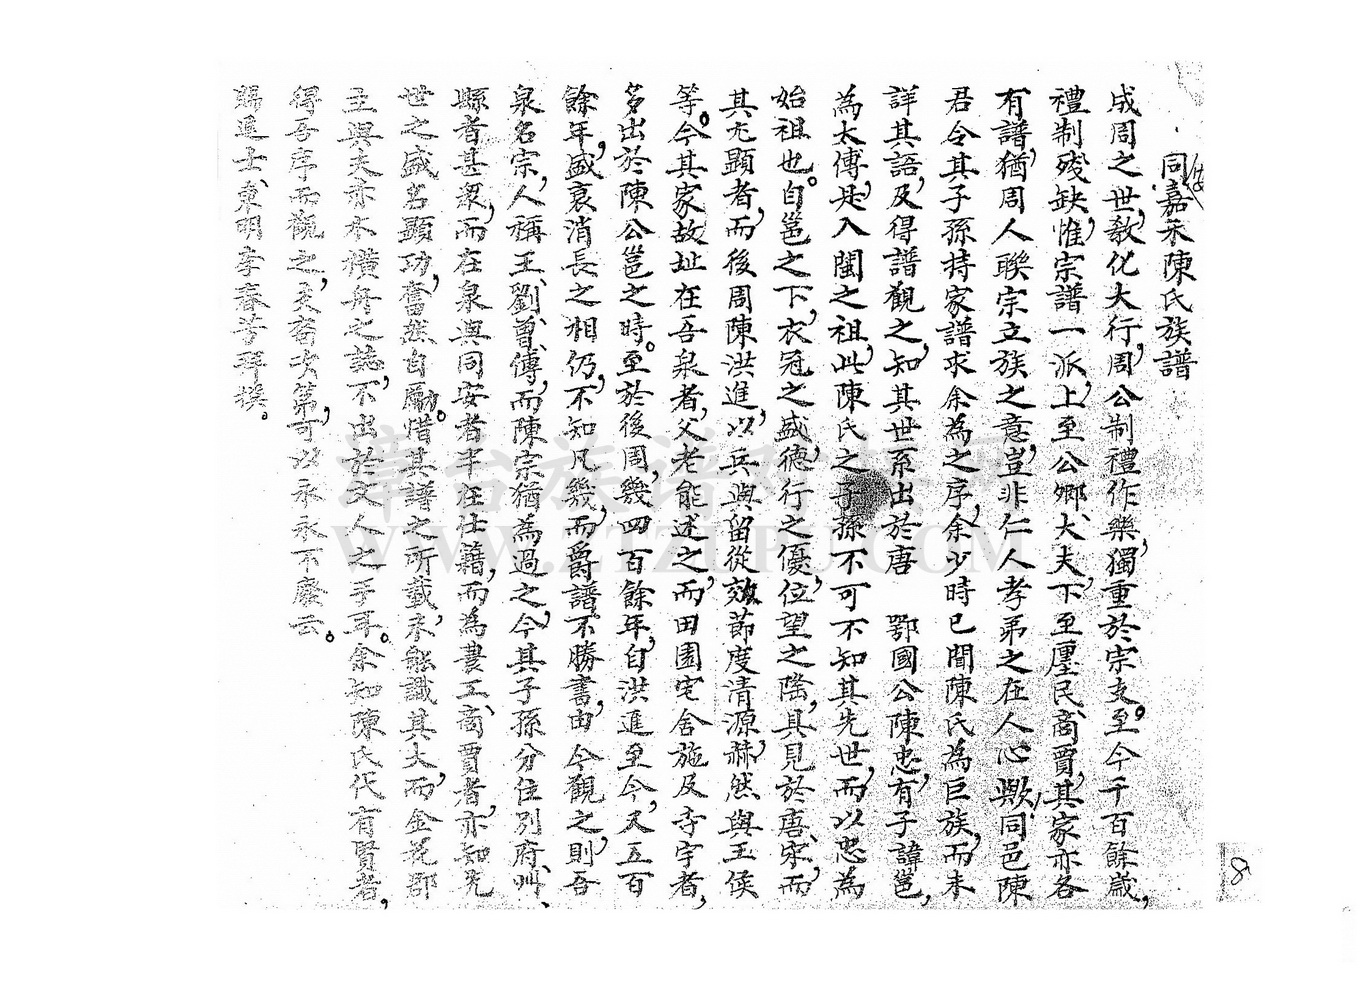 同嘉禾陳氏族譜
成周之世,教化大行,周公制禮作樂,獨重於宗支。至今千百餘歲,
禮制殘缺,惟宗譜一派,上至公卿、大夫,下至厘民、商賈,其家亦各
有譜,猶周人聯宗立族之意,豈非仁人孝弟之在人心歟,同邑陳
君令其子孫持家譜求余為之序,余少時已聞陳氏為巨族,而未
詳其語,及得譜觀之,知其世系出於唐 鄂國公陳忠,有子諱邕,
為太傅,是入閩之祖,此陳氏之子孫不可不知其先世,而以忠為
始祖也。自邕之下,衣冠之盛,德行之優,位望之隆,其見於唐、宋,而
其尤顯者,而後周陳洪進,以兵與留從效節度清源,赫然與王侯
等。今其家故址在吾泉者,父老能述之,而田園宅舍施及寺宇者,
多出於陳公邕之時。至於後周,幾四百餘年,自洪進至今,又五百
餘年,盛衰消長之相仍,不知凡幾,而爵譜不勝書,由今觀之,則吾
泉名宗,人稱王、劉、曾、傅,而陳宗猶為過之,今其子孫分住別府、州、
縣者甚衆,而在泉與同安者半在仕籍,而為農工、商賈者,亦知先
世之盛名顯功,奮然自勵。惜其譜之所載,未能識其大,而金花郡
主與夫亦水橫舟之誌,不出於文人之手耳。余知陳氏代有賢者,
得吾序而觀之,支裔次第,可以永永不廢云。
賜進士、東明李春芳拜撰。
8
WWW.ZTZUPU.COM